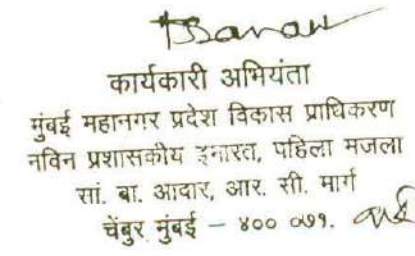 कार्यकारी अभियंता
मुंबई महानगर प्रदेश विकास प्राधिकरण
नविन प्रशासकीय इमारत, पहिला मजला
सां. बा. आदार, आर. सी. मार्ग
चेंबुर मुंबई – ४०० ०७१.